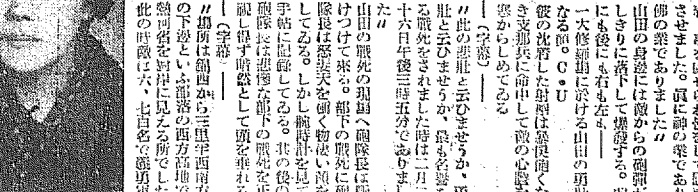 させました。眞に神の業であ
佛の業でありました〃
山田の身邊には敵からの砲彈が
しきりに落下して爆發する。
にも後にも右も左も――
一大修羅場に於ける山田の勇
なる顏。C・U
彼の沈着した射擊は暴戾飽くな
き支那兵に命中して敵の心膽を
寒からしめてゐる
(字幕)――
〃此の悲壯と云ひませうか、
壯と云ひませうか、最も名譽
る戰死をされました時は二月二
十六日午後三時五分でありまし
た〃
山田の戰死の現場へ砲隊長は
けつけて來る。部下の戰死に砲
隊長は怒髮天を衝く物凄い顏を
してゐる。しかし腕時計を見て
手帖に記錄してゐる。其の後の
砲隊長は悲慘な部下の戰死を正
視し得ず暗然として頭を垂れる
(字幕)――
〃場所は鷄西から三里半西南方
の下邊といふ部落の西方高地で
熱河省を對岸に見える所でした
此の時敵は六、七百名で義勇軍